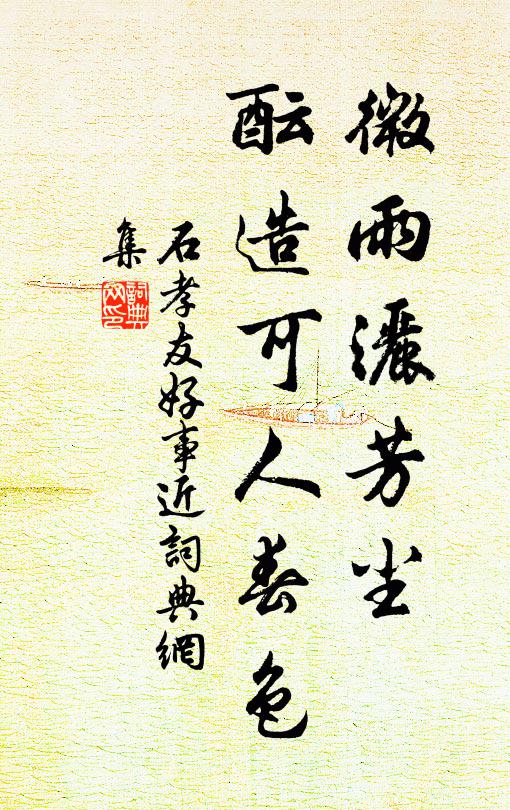 微雨灑芳尘
酝造可人春色
石孝友好事近詞典網
集
詞典網印